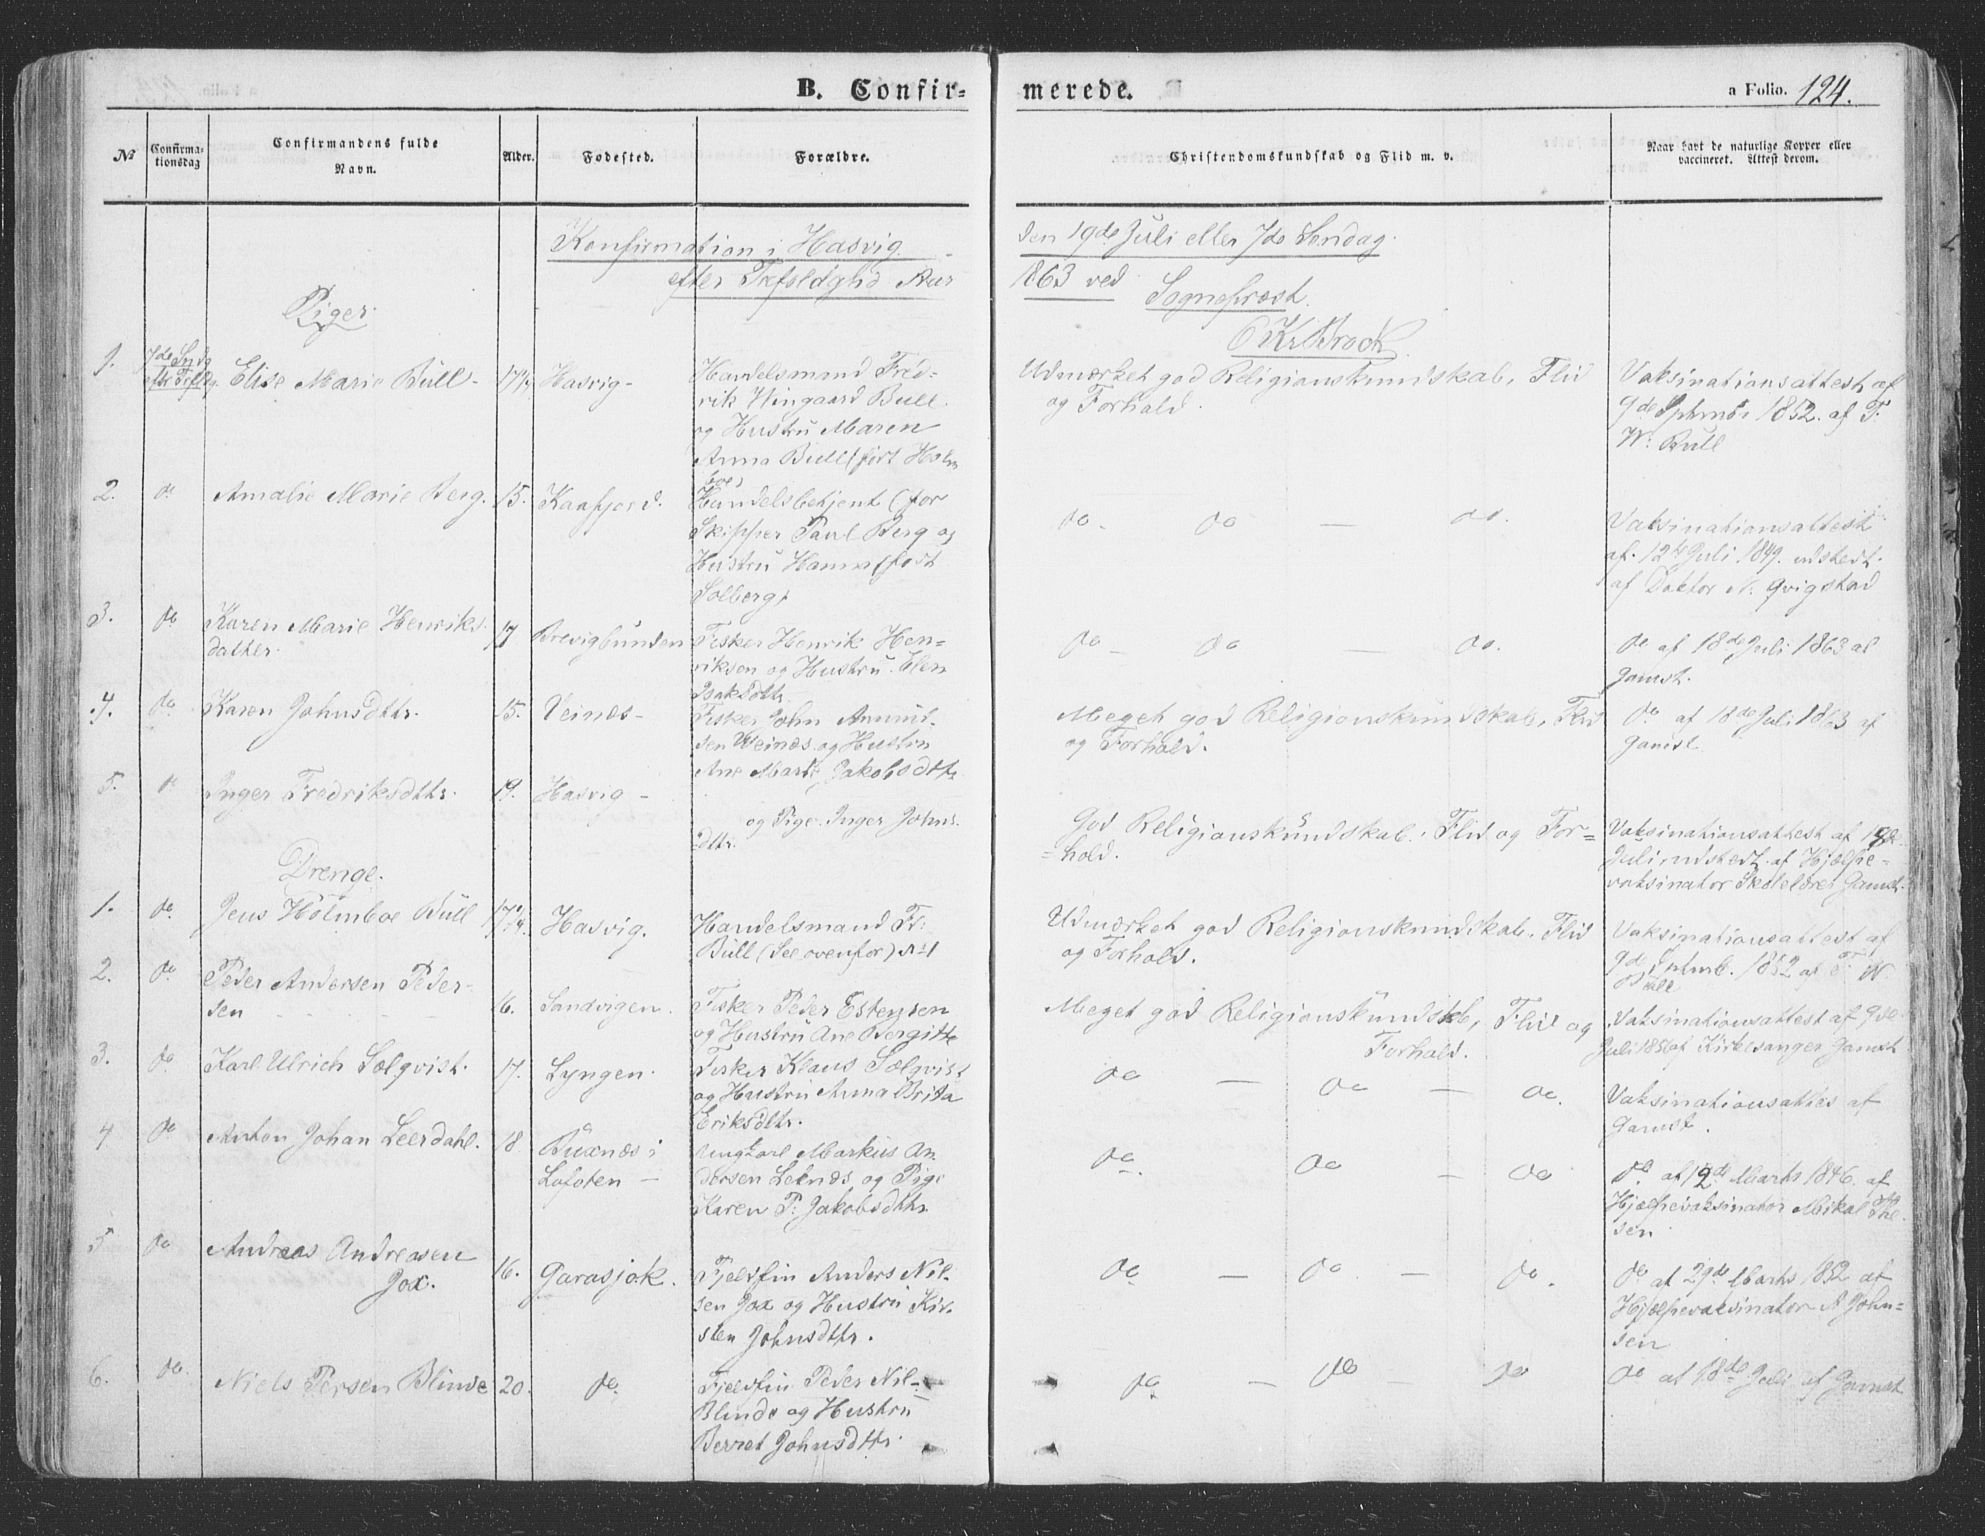 B. Confir-
merede.
a Folio. 124.
No
Confirma-
tionsdag
Confirmandens fulde
Navn.
Alder.
Fødested.
Forældre.
Christendomskundskab og Flid m. v.
Naar havt de naturlige Kopper eller
vaccineret. Attest derom.
Konfirmation i Hasvig
den 19de Juli eller 7de Søndag
efter Trefoldighd Aar
1863 ved
Sognepræst
Piger.
O Kr Brock
1.
7de Sndg
eftr Trfldg.
Elise Marie Bull -
17 1/4
Hasvig -
Handelsmand Fred-
rik Wingaard Bull
og Hustru Maren
Anna Bull (født Holm
boe)
Udmærket god Religionskundskab, Flid
og Forhold.
Vaksinationsattest af
9de Sptmbr 1852. af F.
W. Bull
2.
do
Amalie Marie Berg.
15.
Kaafjord.
Handelsbetjent (for
Skipper Paul Berg og
Hustru Hanna (født
Solberg)
do - do — do.
Vaksinationsattest
af 12te Juli 1849. udstedt
af Doctor N. Qvigstad
3.
do
Karen Marie Henriks
datter.
17
Brevigbunden
Fisker Henrik Hen-
riksen og Hustru Elen
Isaksdttr.
do - do — do.
do af 18de Juli 1863 af
Gamst.
4.
do
Karen Johnsdttr.
15.
Veinæs -
Fisker John Amund-
sen Weinæs og Hustru
Ane Marie Jakobsdttr
Meget god Religionskundskab, Flid
og Forhold.
do af 18de Juli 1863 af
Gamst
5.
do
Inger Fredriksdttr.
19.
Hasvig -
og Pige Inger Johns
dttr.
God Religionskundskab, Flid og For-
-hold.
Vaksinationsattest af 18de
Juli udstedt af Hjælpe-
vaksinator Skolelærer Gamst.
Drenge.
1.
do.
Jens Holmboe Bull
17 1/4.
Hasvig.
Handelsmand Fr:
Bull (See ovenfor) No 1
Udmærket god Religionskundskab, Flid
og Forhold.
Vaksinationsattest af
9de Sptmb. 1852 af F. W
Bull
2.
do
Peder Andersen Peder-
sen
16.
Sandvigen.
Fisker Peder Estensen
og Hustru Ane Bergitte
Meget god Religionskundskb, Flid og
Forhold.
Vaksinationsattest af 9de
Juli 1856 af Kirkesanger Gamst
3.
do
Karl Ulrich Sælqvist.
17.
Lyngen.
Fisker Klaus Sælqvist
og Hustru Anna Brita
Eriksdttr.
do — do — do.
Vaksinationsattes af
Gamst.
4
do
Anton Johan Leerdahl.
18
Buxnæs i
Lofoten -
Ungkarl Markus An
dersen Leknæs og Pige
Karen P. Jakobsdttr
do. do — do
do. af 12de Marts 1846. af
Hjælpevaksinator Mikal
sen
5
do
Andreas Andreasen
Jox.
16.
Garasjok.
Fjeldfin Anders Nil-
sen Jox og Hustru Kir-
sten Johnsdttr.
do — do — do.
do af 29de Marts 1852 af
Hjælpevaksinator A John-
sen
6.
do.
Niels Persen Blinde
20.
do.
Fjeldfin Peder Nil-
Blinde og Hustru
Berret Johnsdttr.
do. — do — do
do af 18de Juli af Gamst